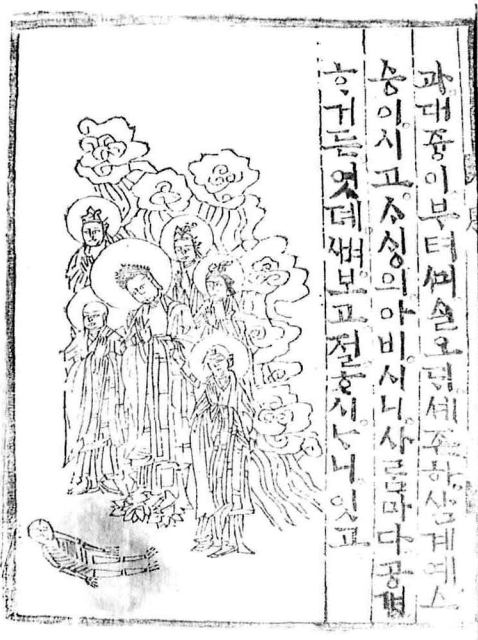 과대즁이부텨ᄭᅴᄉᆞᆯ오ᄃᆡ셰존하삼계예스
승이시고ᄉᆞᄉᆡᆼ의아비시니사ᄅᆞᆷ마다공경
ᄒᆞ거든엇뎨ᄲᅧ보고절ᄒᆞ시ᄂᆞ니잇고